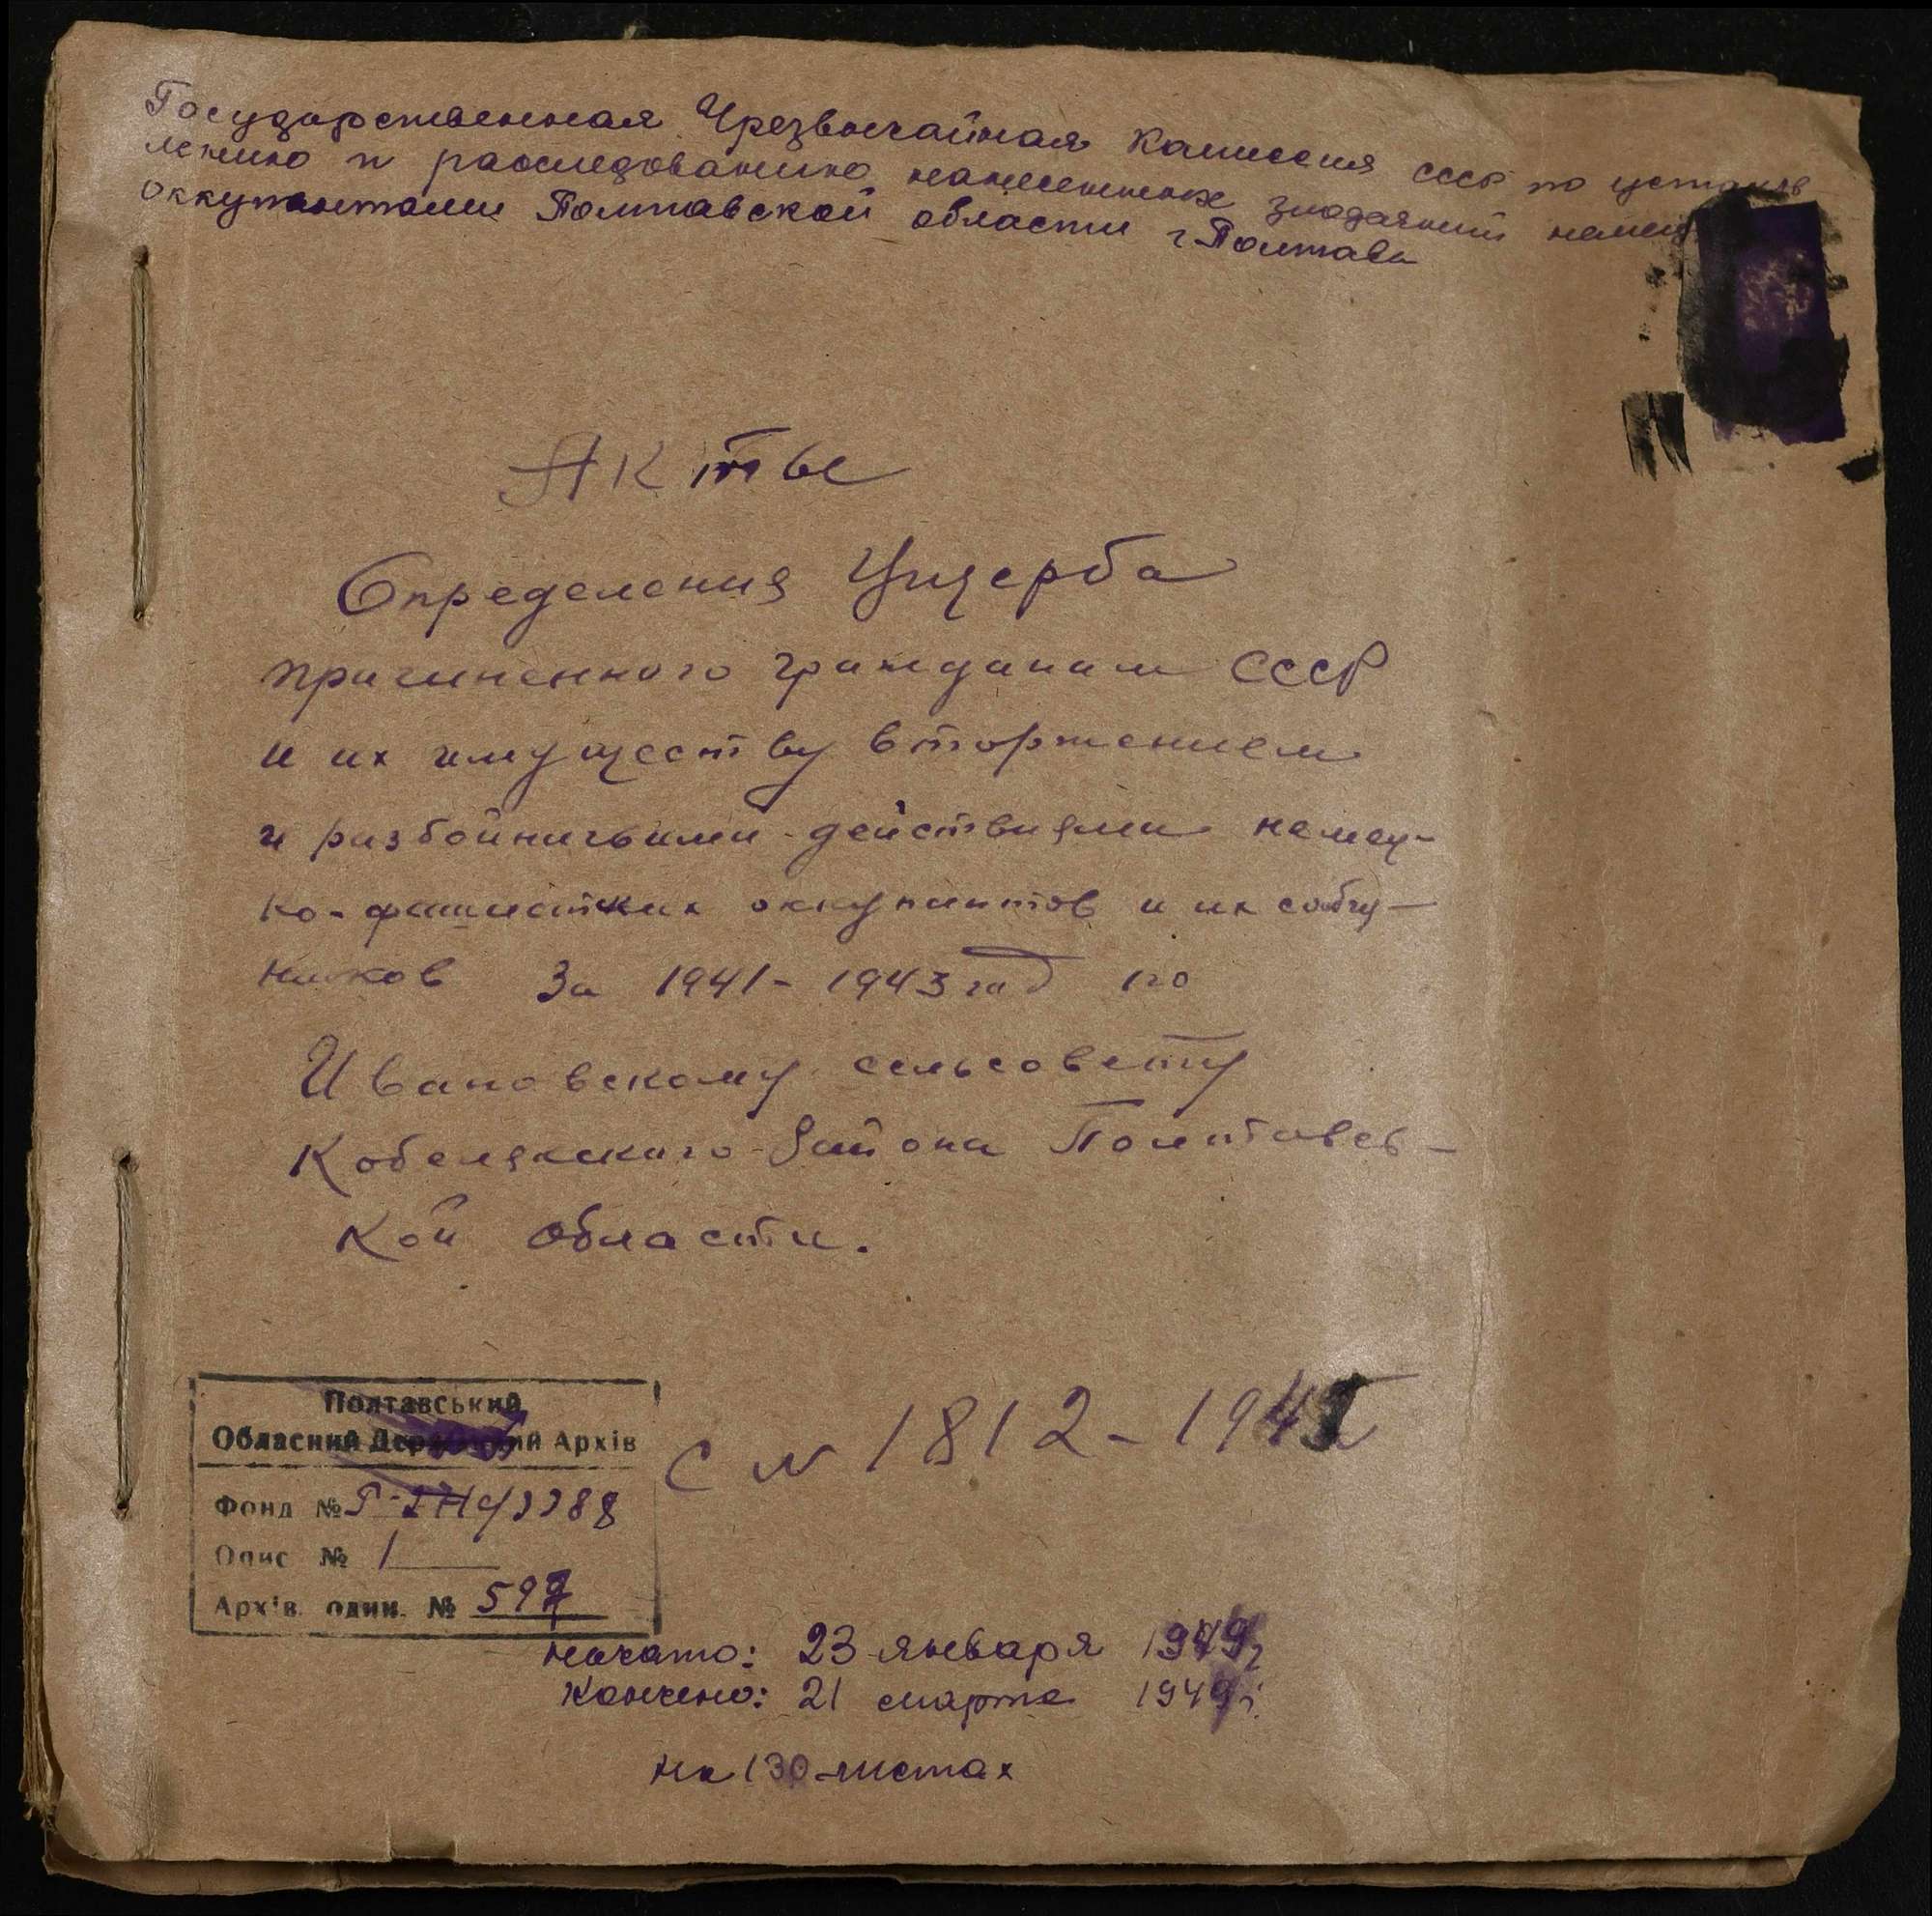 Государственная Чрезвычайная Комиссия СССР по установ
лению и расследованию нанесенных злодеяний немец
оккупантами Полтавской области г. Полтава
Акты
Определения Ущерба
причиненного гражданам СССР
и их имуществу вторжением
и разбойничьими действиями немец-
ко-фашистких оккупантов и их сообщ-
ников За 1941-1943 год по
Ивановскому сельсовету
Кобелякского района Полтавсь-
кой области.
Полтавський
Обласний Державний Архів
С № 1812-194
Фонд № Р-3388
Опис № 1
Архів. один. № 597
Начато: 23 января 1949г
Кончено: 21 марта 1949г.
на 130 листах